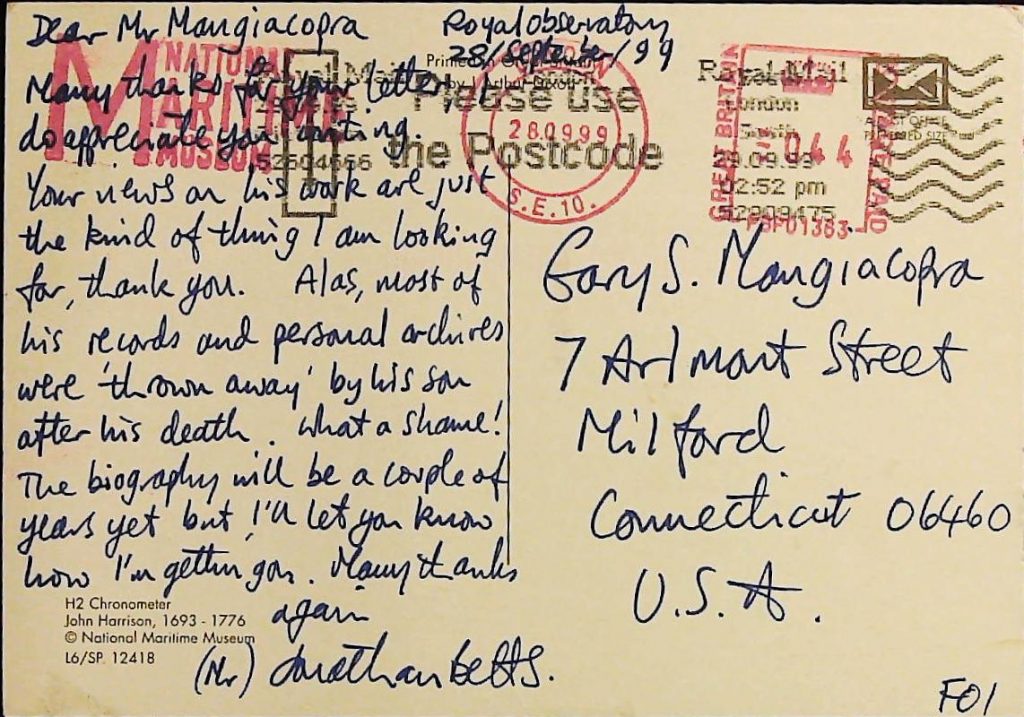 Dear Mr Mangiacopra
Royal Observatory
28/September/99
Many thanks for your letter I
do appreciate you writing.
Your news on his work are just
the kind of thing I am looking
for, thank you. Alas, most of
his records and personal archives
were 'thrown away' by his son
after his death. What a shame!
The biography will be a couple of
years yet but I'll let you know
how I'm getting on. Many thanks
again
(Mr) Jonathan Betts.
H2 Chronometer
John Harrison, 1693 - 1776
© National Maritime Museum
L6/SP. 12418
NATIONAL
MARITIME
MUSEUM
Please use
the Postcode
52604666
LONDON
28.09.99
S.E.10.
GREAT BRITAIN
POSTAGE PAID
≈044
PBP01383
Royal Mail
London
South
29.09.99
02:52 pm
Gary S. Mangiacopra
7 Arlmont Street
Milford
Connecticut 06460
U.S.A.
FOI